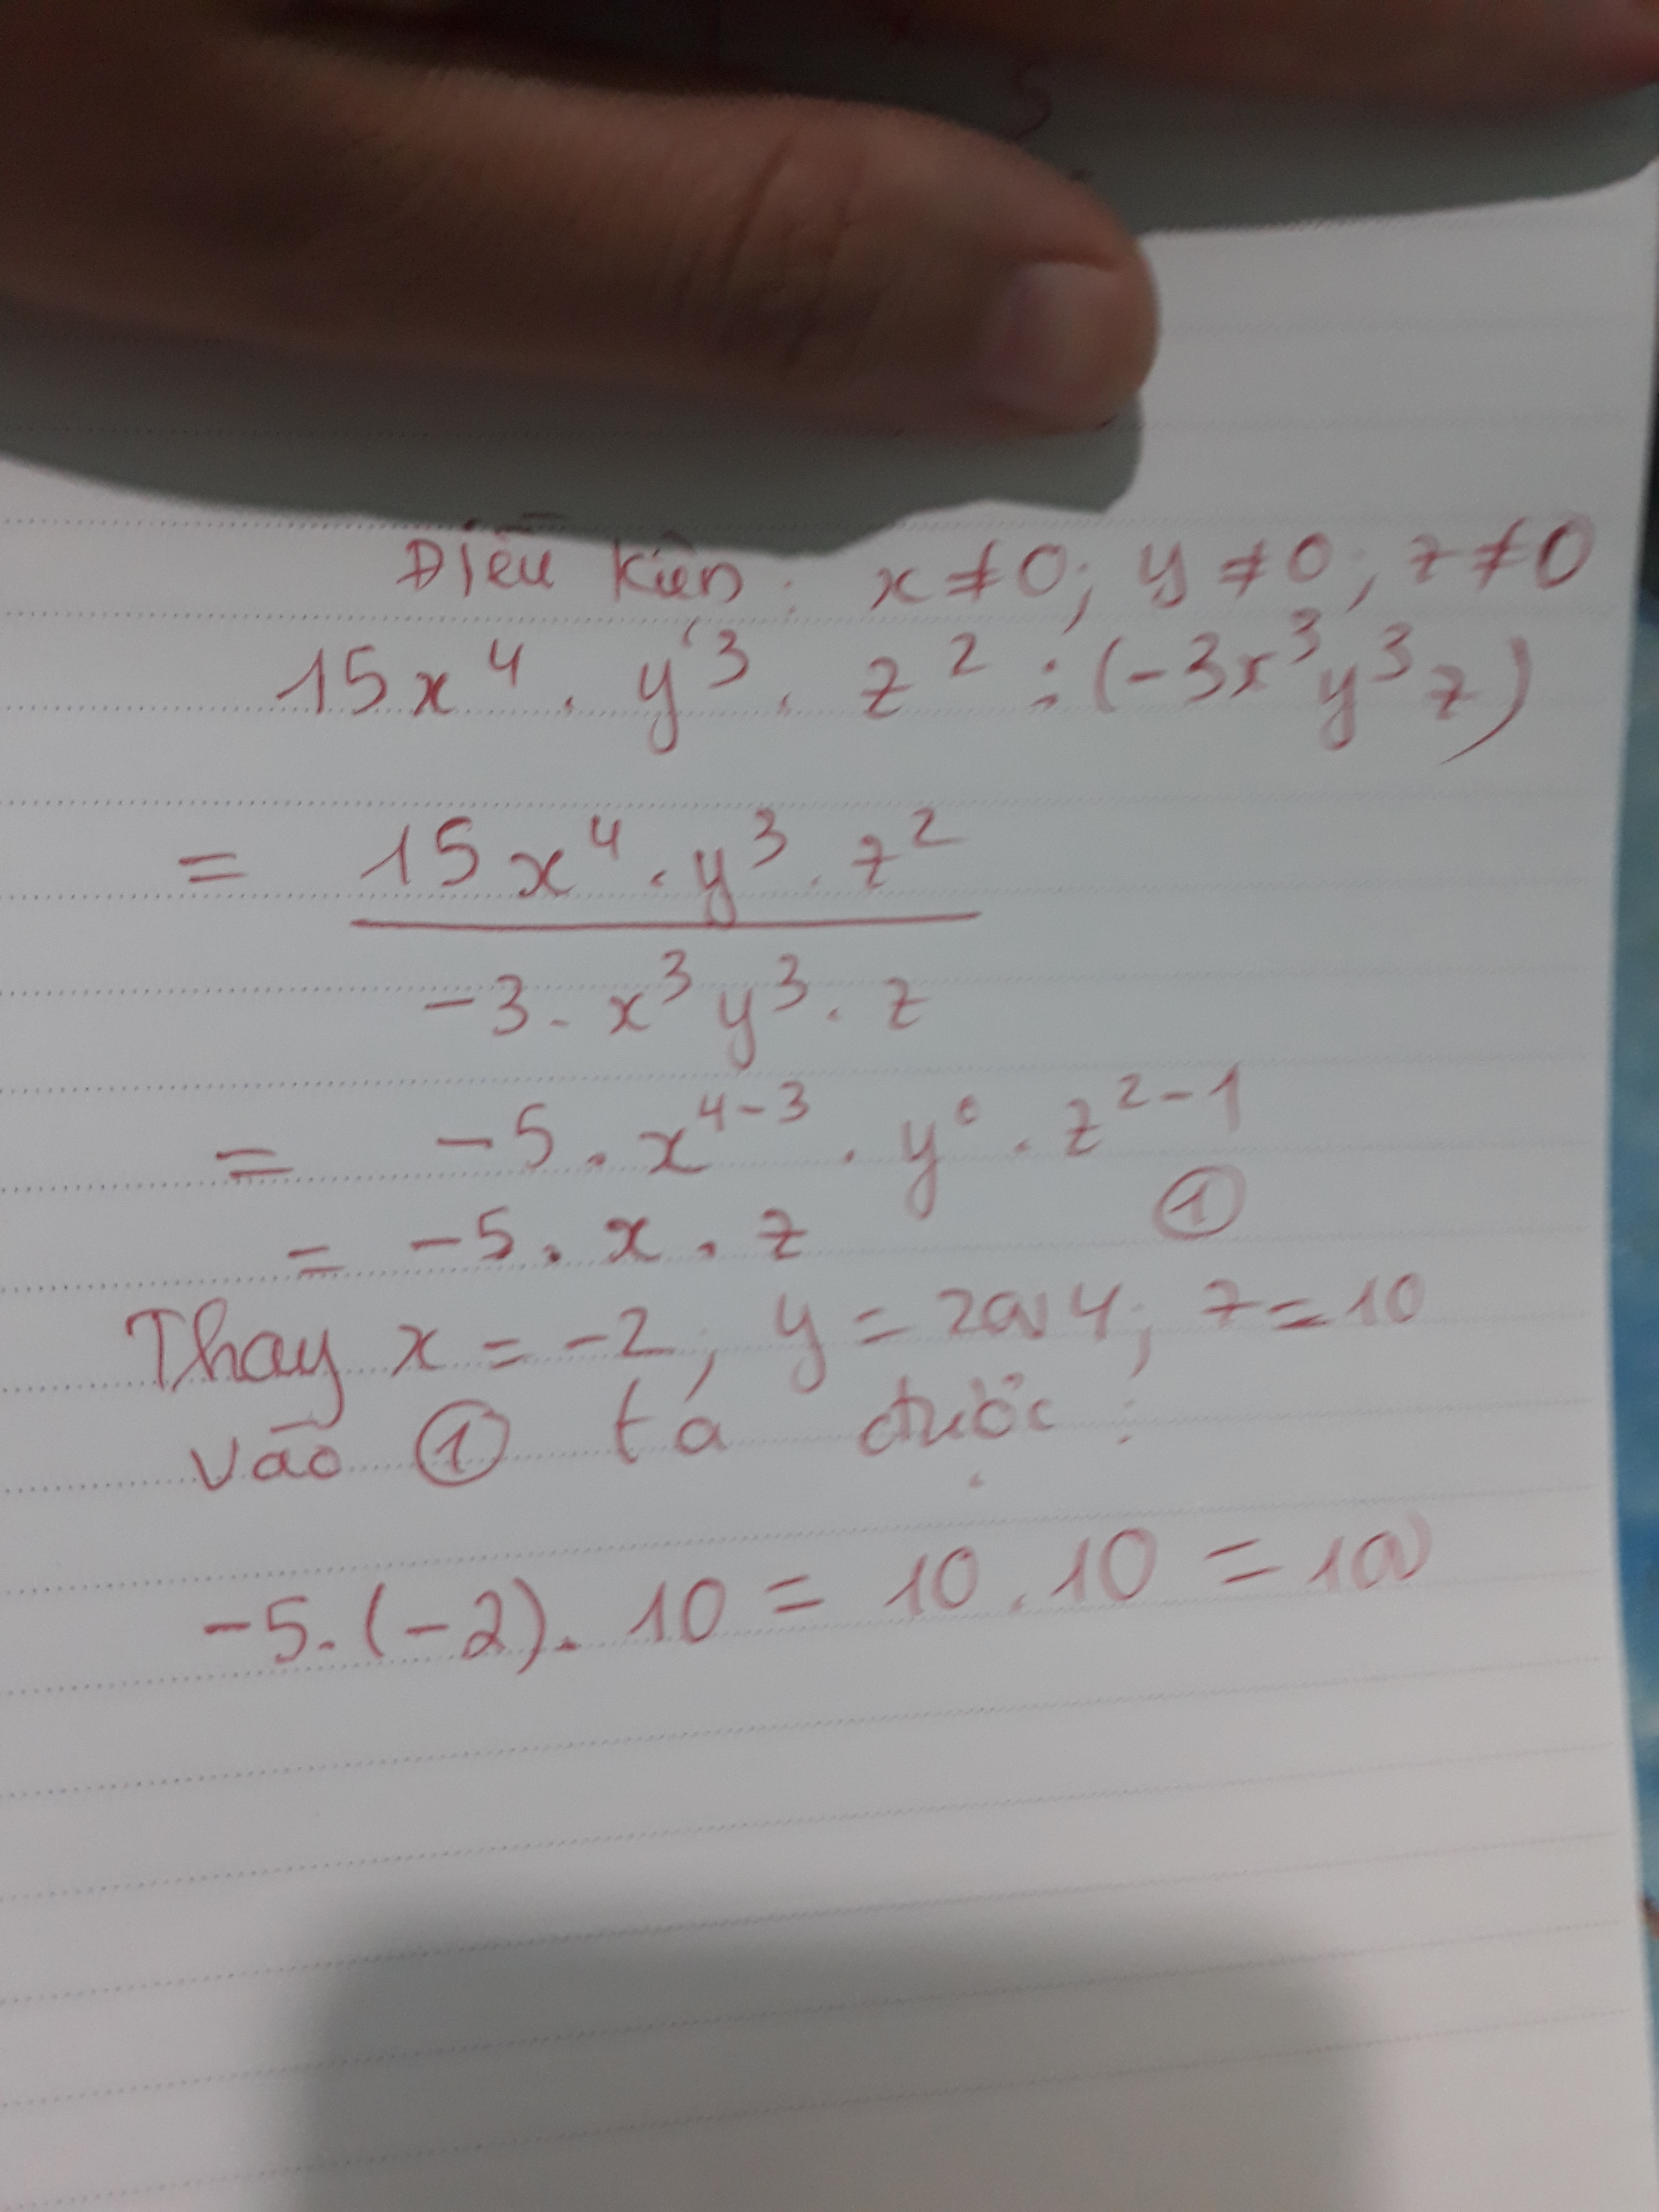 Điều kiện: x ≠ 0; y ≠ 0; z ≠ 0
15x⁴ . y³ . z² : (-3x³y³z)
= 15x⁴ . y³ . z²
-3 . x³y³ . z
= -5 . x⁴⁻³ . y⁰ . z²⁻¹
= -5 . x . z ①
Thay x = -2; y = 2004; z = 10
vào ① ta được:
-5.(-2). 10 = 10 . 10 = 100